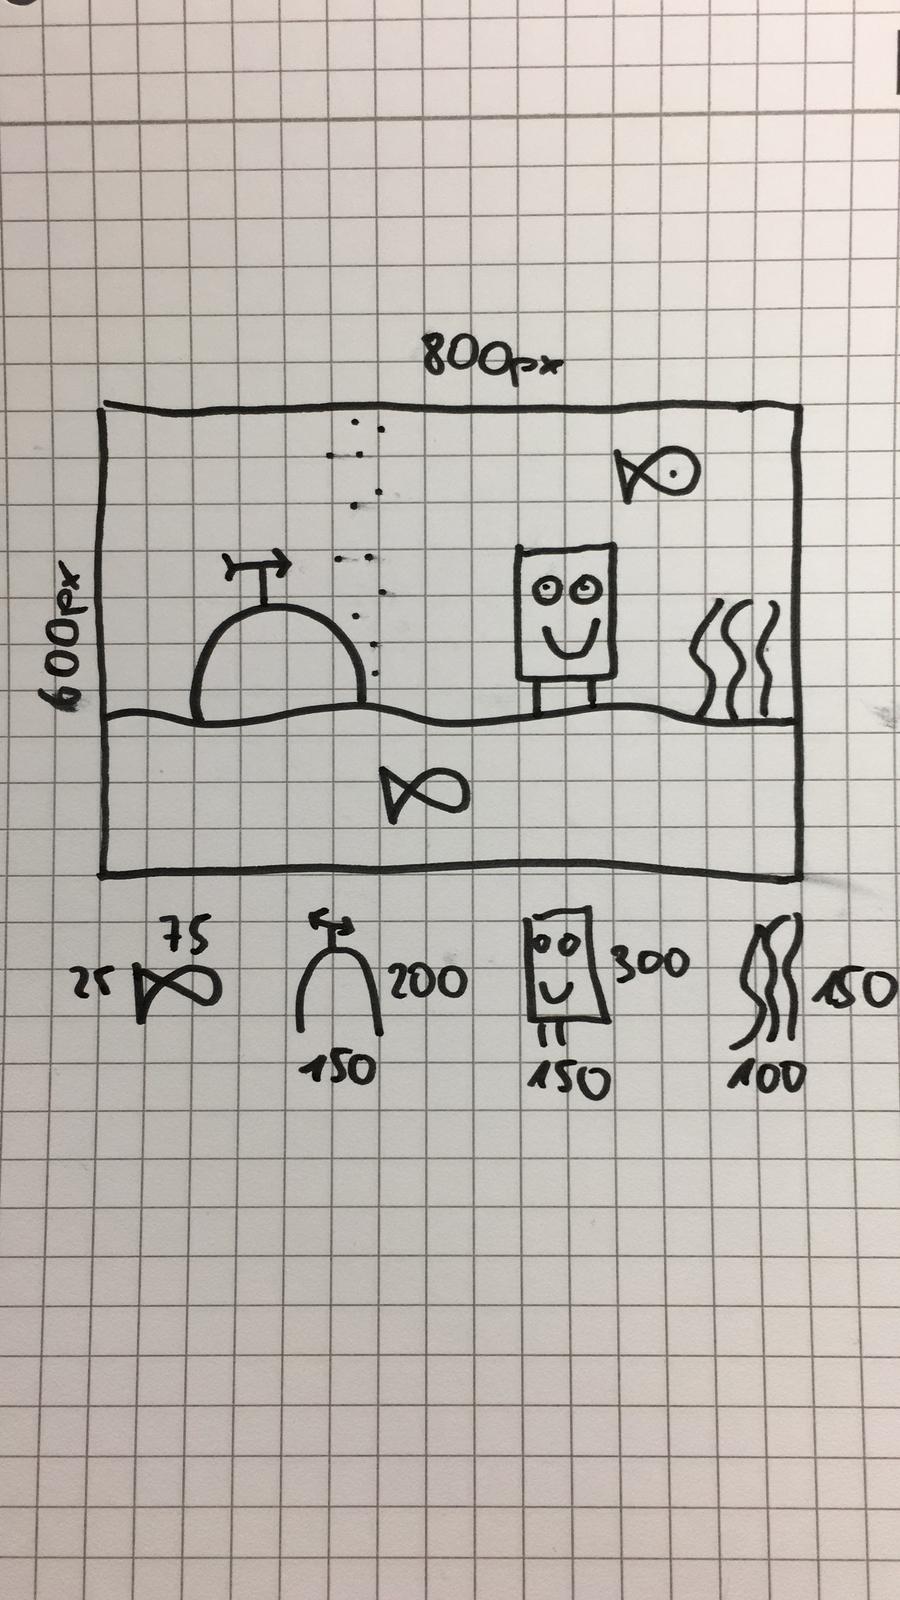 800px
600px
75
25
200
150
300
150
150
100